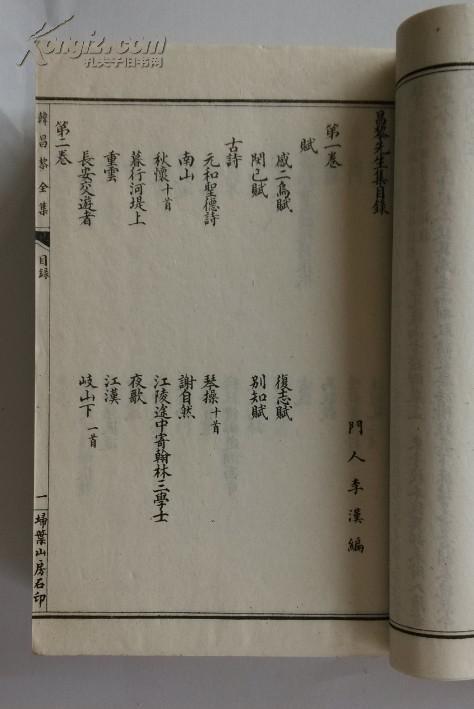 昌黎先生集目錄
門人李漢編
第一卷
賦
感二鳥賦 復志賦
閔己賦 別知賦
古詩
元和聖德詩 琴操十首
南山 謝自然
秋懷十首 江陵途中寄翰林三學士
暮行河堤上 夜歌
重雲 江漢
長安交遊者 岐山下一首
第二卷
韓昌黎全集 目錄 一 埽葉山房石印
Kongfz.com
孔夫子旧书网